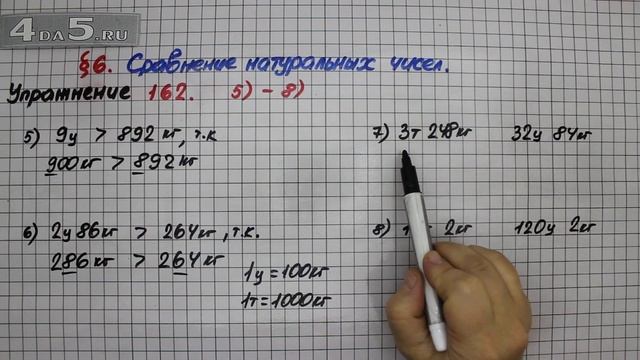 4DA5.RU
§6. Сравнение натуральных чисел.
Упражнение 162. 5) - 8)
5) 9ц > 892 кг, т.к
900кг > 892кг
6) 2ц 86кг > 264кг, т.к.
286кг > 264кг
1ц = 100кг
1т = 1000кг
7) 3т 248кг 32ц 84кг
8) 2кг 120ц 2кг